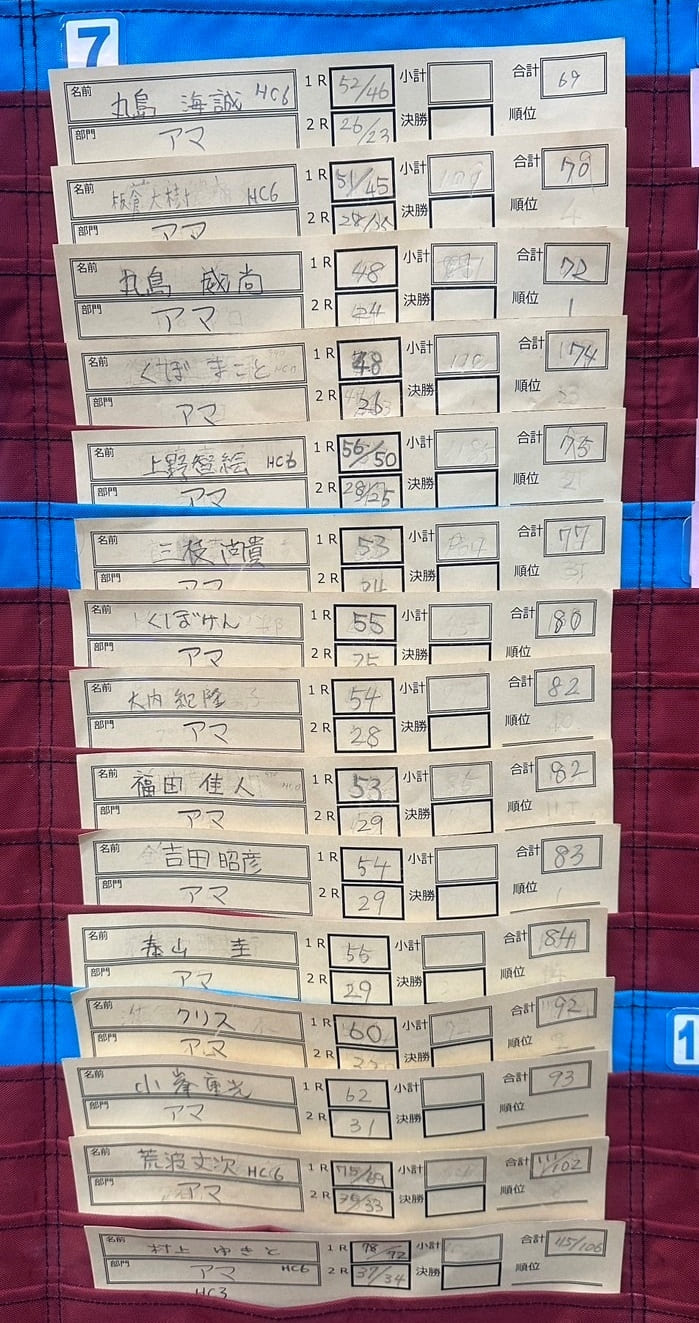 7
名前 丸島 海誠 HC6 1R 52/46 小計 合計 69
部門 アマ 2R 26/23 決勝 順位
名前 板倉大樹 HC6 1R 51/45 小計 109 合計 70
部門 アマ 2R 28/25 決勝 順位 4
名前 丸島 威尚 1R 48 小計 合計 72
部門 アマ 2R 24 決勝 順位 1
名前 くぼ まこと 1R 48 小計 合計 74
部門 アマ 2R 26 決勝 順位
名前 上野智絵 HC6 1R 56/50 小計 合計 75
部門 アマ 2R 28/25 決勝 順位
名前 三枝尚貴 1R 53 小計 合計 77
部門 アマ 2R 24 決勝 順位
名前 くぼけん 1R 55 小計 合計 80
部門 アマ 2R 25 決勝 順位
名前 大内紀隆 1R 54 小計 合計 82
部門 アマ 2R 28 決勝 順位
名前 福田佳人 1R 53 小計 合計 82
部門 アマ 2R 29 決勝 順位
名前 吉田昭彦 1R 54 小計 合計 83
部門 アマ 2R 29 決勝 順位
名前 泰山 圭 1R 55 小計 合計 84
部門 アマ 2R 29 決勝 順位
名前 クリス 1R 60 小計 合計 92
部門 アマ 2R 決勝 順位
名前 小峯重光 1R 62 小計 合計 93
部門 アマ 2R 31 決勝 順位
名前 荒波文次 HC6 1R 75/69 小計 合計 111/102
部門 アマ 2R 36/33 決勝 順位
名前 村上 ゆきと 1R 78/72 小計 合計 115/106
部門 アマ HC6 2R 37/34 決勝 順位
HC3
1